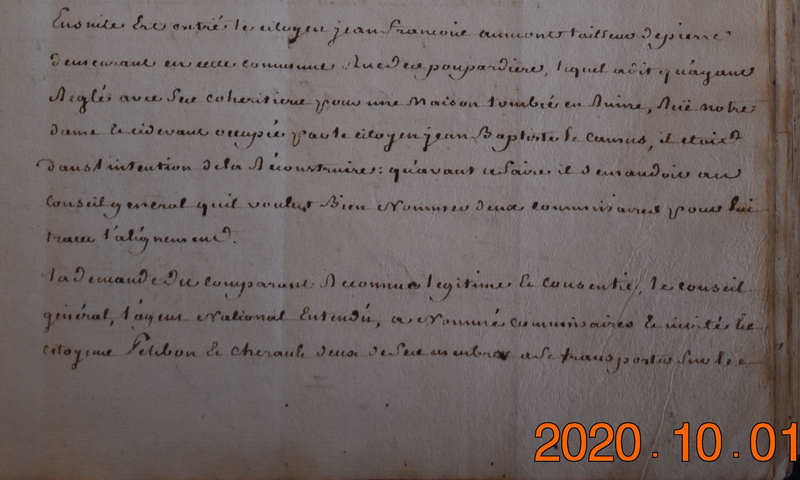 Ensuite Est entré le citoyen jean francois aumont tailleur depierre
demeurant en cette commune Rue dela poupardière, lequel adit qu'ayant
Reglé avec ses coheritiers pour une Maison tombée en Ruine, Ruë notre
dame & cidevant occupée par le citoyen jean Baptiste le Camus, il etoit
dans l'intention de la Réconstruire: qu'avant cefaire il demandoit au
Conseil general quil voulut Bien Nommer deux commissaires pour lui
tracer l'alignement.
la demande du comparant Reconnue legitime & consentie, le conseil
général, l'agent National Entendu, a Nommé commissaires & invité les
citoyens Petibon & cherault deux de ses membres ase transporter sur les
2020.10.01